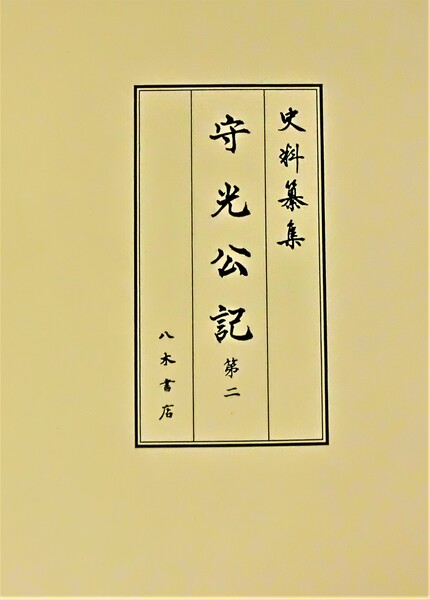 史料纂集
守光公記 第二
八木書店